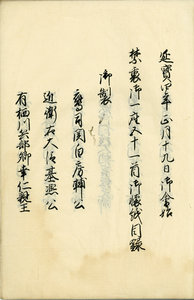 延寶甲子年正月十九日御會始
禁裏御一座五十一首御懐紙目録
御製
鷹司関白房輔公
近衛右大臣基熈公
有栖川兵部卿幸仁親王